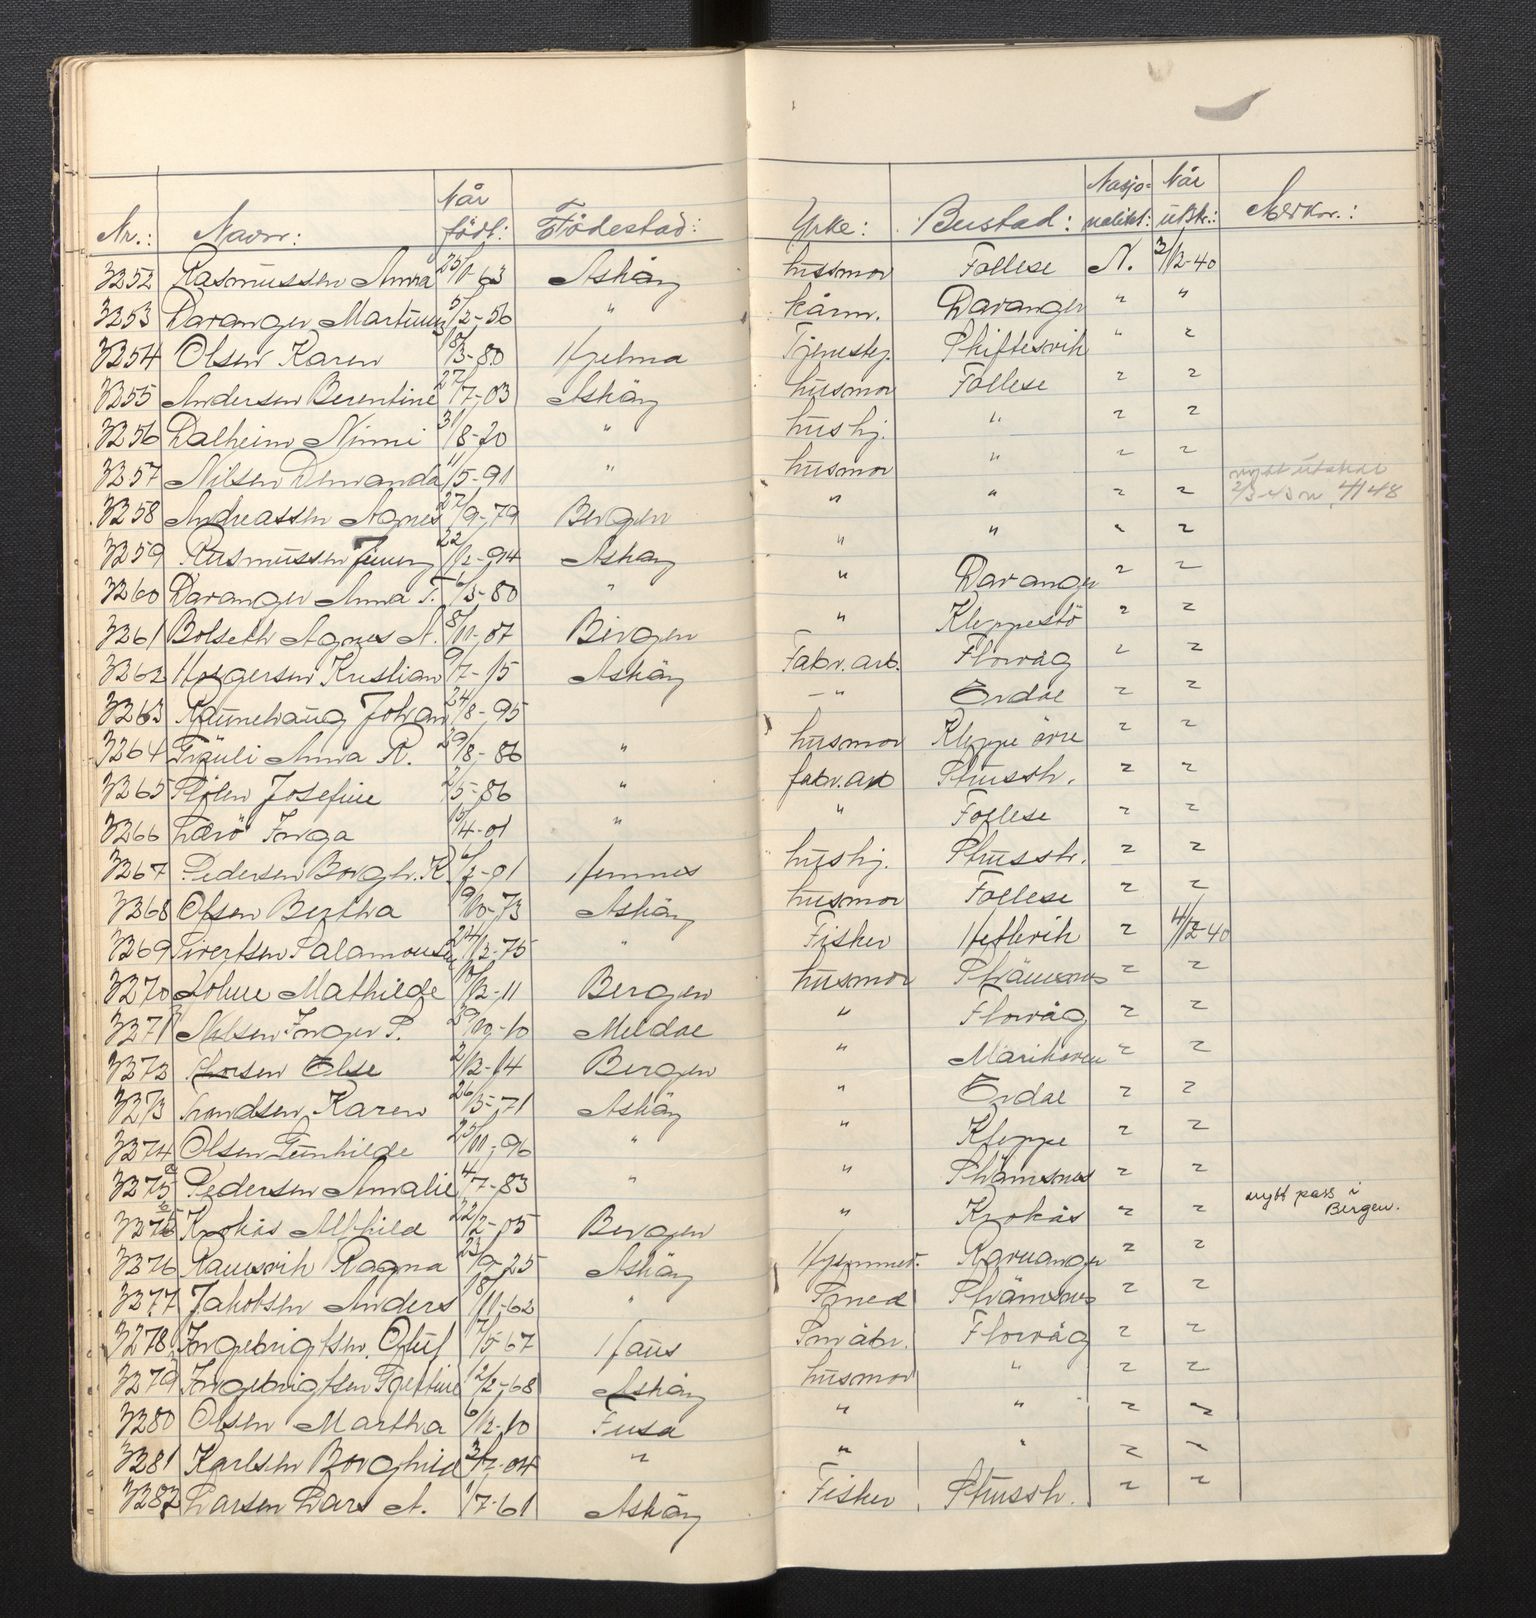 Nr.: Navn: Når födt: Födestad: Yrke: Bustad: Nasjonalitet: Når utskr.: Merkn.:
3252 Rasmussen Anna 25/1-63 Asköy husmor Follese N. 3/12-40
3253 Davanger 5/2-56 " kårm. Davanger " "
3254 Olsen Karen 18/3-80 Hjelma Tjenestej. Skiftesvik " "
3255 Andersen Berentine 27/7-03 Asköy husmor Follese " "
3256 Dalheim Ninni 31/8-20 " hushj. " " "
3257 Nilsen 11/5-91 " husmor " " " nytt utskr. 2/3-43 nr. 4148
3258 Andreassen Agnes 27/9-79 Bergen " " " "
3259 Rasmussen Jenny 22/12-94 Asköy " " " "
3260 Davanger Anna T. 6/3-80 " " Davanger " "
3261 Bolseth Agnes A. 8/11-07 Bergen " Kleppestö " "
3262 Holgersen Kristian 9/7-15 Asköy Fabr.arb. Florvåg " "
3263 Ravnehaug Johan 24/8-95 — " Erdal " "
3264 Anna R. 29/8-86 " husmor Kleppe övre " "
3265 Josefine 2/5-86 " fabr.arb Strussh. " "
3266 Lerö Inga 15/4-01 " " Follese " "
3267 Pedersen Borgh. K. 6/2-01 Hemnes hushj. Strussh. " "
3268 Olsen Bertha 19/10-73 Asköy husmor Follese " "
3269 Sivertsen Salamonsen 24/12-75 " Fisker Hetlevik " 4/12-40
3270 Lohne Mathilde 17/12-11 Bergen husmor Strämsnes " "
3271 Nilsen Inger P. 30/10-10 Meldal " Florvåg " "
3272 Else 2/12-14 Bergen " Marikoven " "
3273 Karen 26/5-71 Asköy " Erdal " "
3274 Olsen Gunhilde 25/11-96 " " Kleppe " "
3275 a Pedersen Amalie 4/7-83 " " Strämsnes " "
3275 b Krokås Althild 22/2-05 Bergen " Krokås " " nytt pass i
Bergen.
3276 Ramsvik Ragna 23/9-25 Asköy Hjemmev. Ravnanger " "
3277 Jakobsen Anders 18/11-62 " Smed Strämsnes " "
3278 Ingebrigtsen Oluf 17/5-67 Haus Småbr. Florvåg " "
3279 Ingebrigtsen Gjertine 12/2-68 Asköy husmor " " "
3280 Olsen Martha 6/12-10 Fusa " " " "
3281 Karlsen Borghild 3/12-04 " " " " "
3282 Larsen Lars A. 1/7-61 Asköy Fisker Strussh. " "